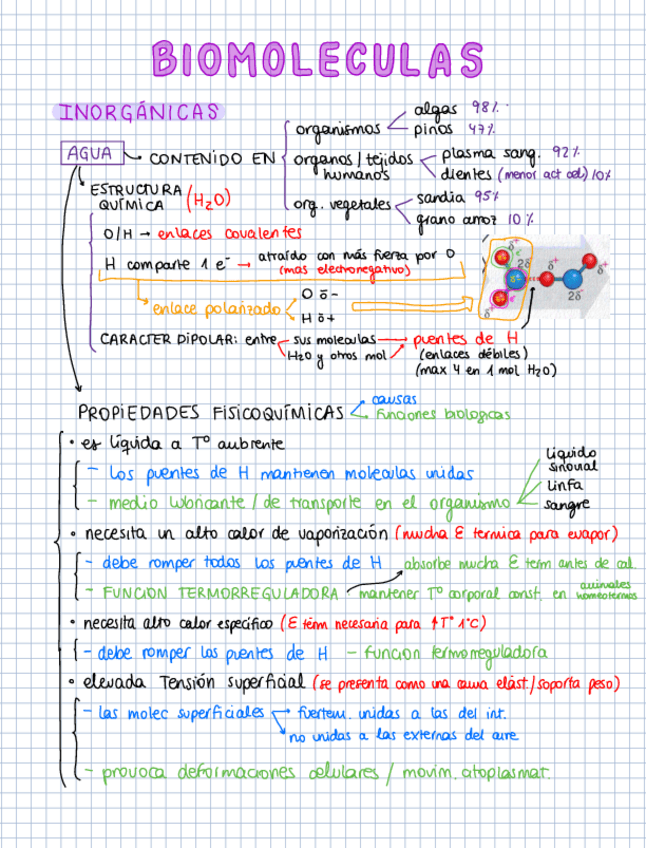 BIOMOLECULAS
INORGÁNICAS
AGUA
CONTENIDO EN
organismos
algas 98%
pinos 47%
organos/tejidos humanos
plasma sang. 92%
dientes (menor act cel.) 10%
org. vegetales
sandia 95%
grano arroz 10%
ESTRUCTURA QUÍMICA (H₂O)
O/H → enlaces covalentes
H comparte 1 e⁻ → atraído con más fuerza por O
(mas electronegativo)
enlace polarizado
O δ-
H δ+
δ+
2δ-
δ+
2δ-
δ+
CARACTER DIPOLAR: entre
sus moleculas
H₂O y otros mol
puentes de H
(enlaces débiles)
(max 4 en 1 mol H₂O)
PROPIEDADES FISICOQUÍMICAS
causas
funciones biologicas
• es líquida a Tº
- los puentes de H mantienen moleculas unidas
- medio lubricante/de transporte en el organismo
liquido
sinovial
linfa
sangre
• necesita un alto calor de vaporización (mucha E termica para evapor)
- debe romper todos los puentes de H
absorbe mucha E term antes de cal
- FUNCION TERMORREGULADORA
mantener Tº corporal const. en animales homeotermos
• necesita alto calor especifico (E térm necesaria para ↑Tº 1ºC)
- debe romper los puentes de H - funcion termorreguladora
• elevada Tensión superficial (se presenta como una cama elást./soporta peso)
- las molec superficiales
fuertem. unidas a las del int.
no unidas a las externas del aire
- provoca deformaciones celulares / movim. citoplasmat.